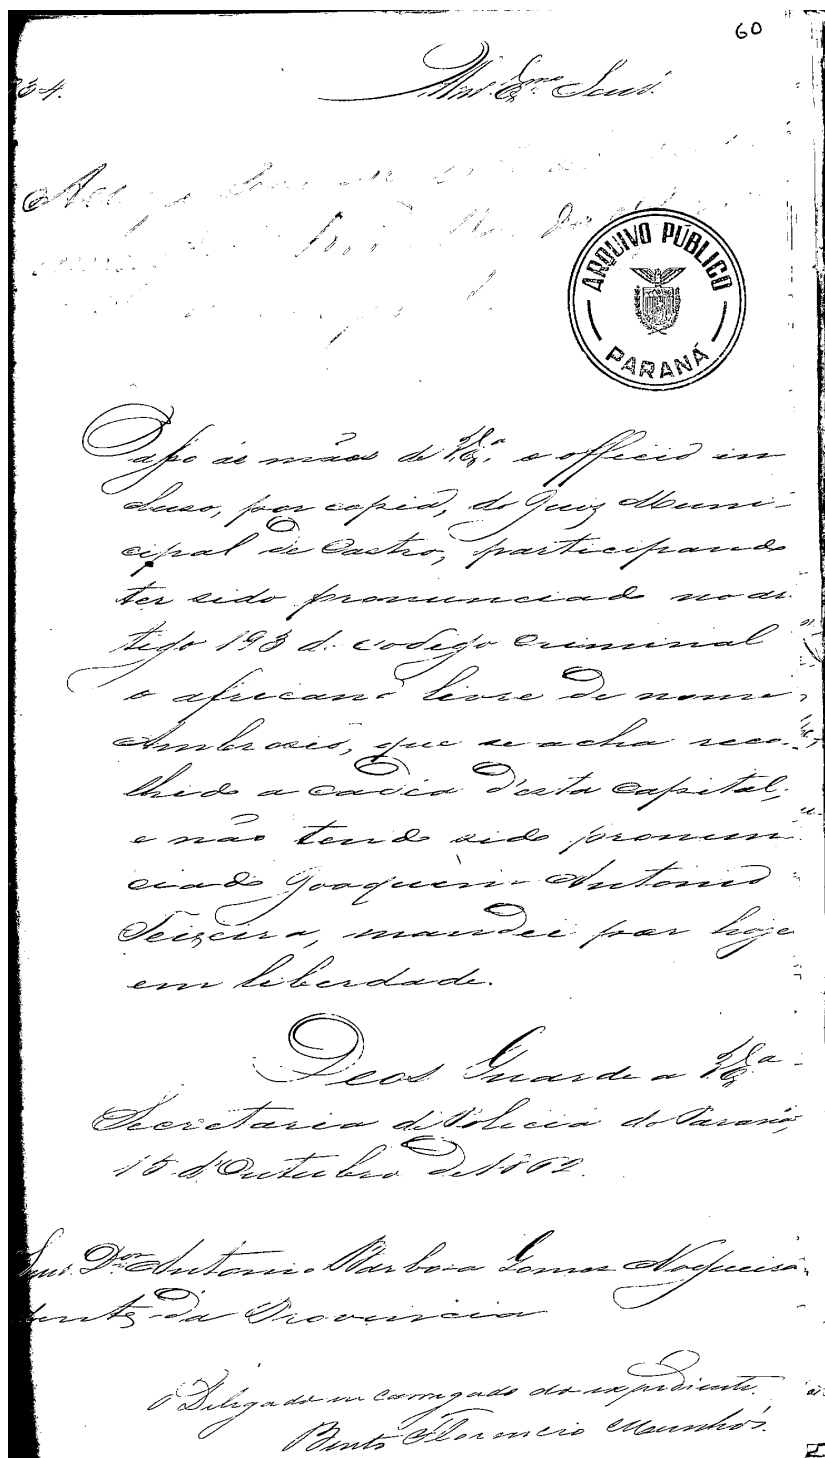 60
34.
Illmo. Exmo. Senr.
ARQUIVO PÚBLICO
PARANÁ
Passo ás mãos de V. Exa. o officio in
cluso, por copia, do Juiz Muni-
cipal de Castro, participando
ter sido pronunciado no ar
tigo 193 d. codigo criminal
o africano livre de nome
Ambrosio, que se acha reco-
lhido a cadêa d'esta capital;
e não tendo sido pronun
ciado Joaquim Antonio
Teixeira, mandei pôr hoje
em liberdade.
Deos Guarde a V. Exa.
Secretaria de Policia do Paraná,
15 d'Outubro de 1862.
Dor. Antonio Barbosa Gomes Nogueira
dente da Provincia
O Delegado encarregado do expediente.
Bento Florencio Munhós.